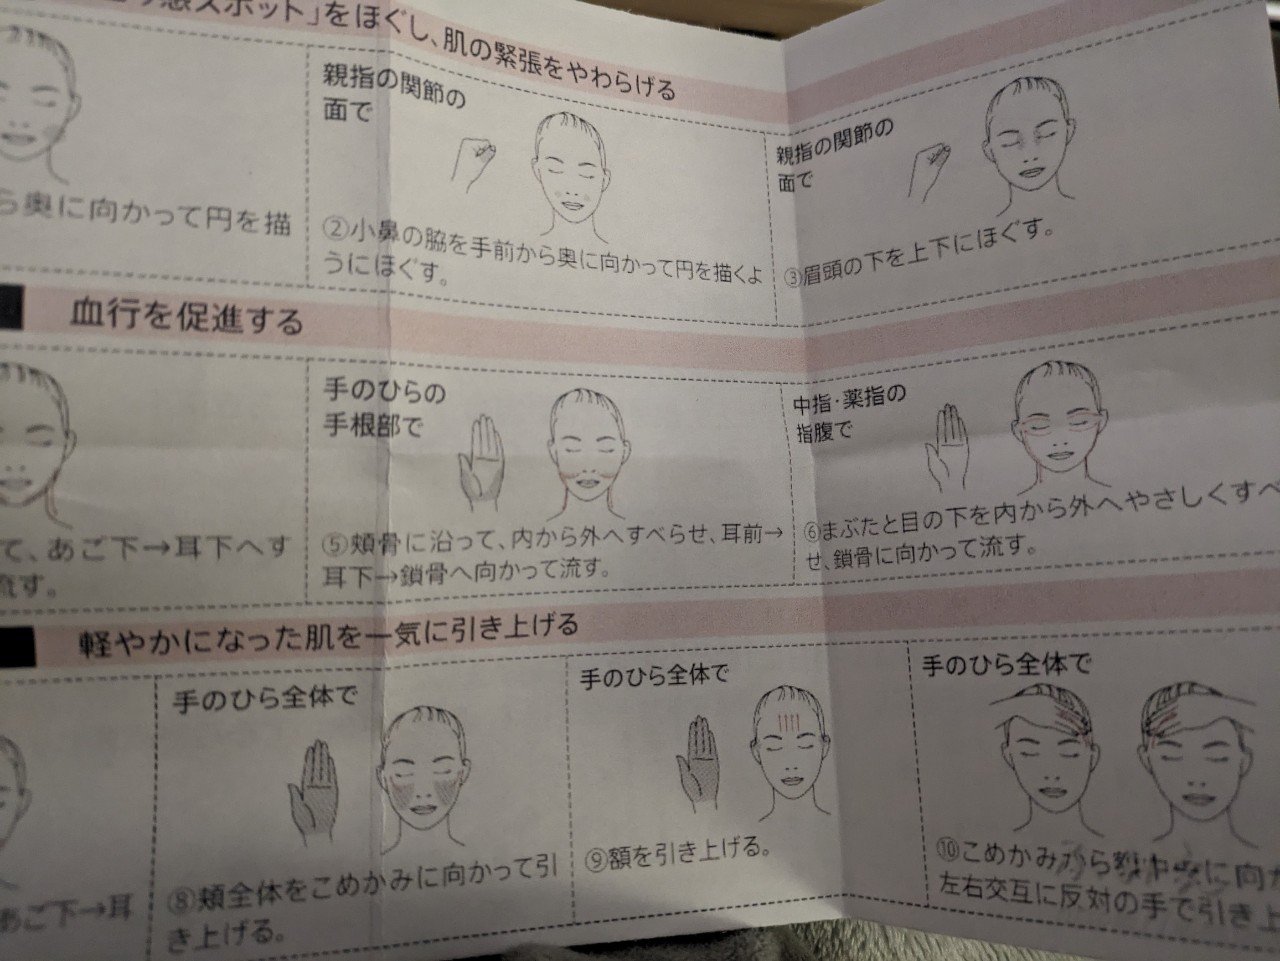 感スポット」をほぐし、肌の緊張をやわらげる
ら奥に向かって円を描
親指の関節の
面で
②小鼻の脇を手前から奥に向かって円を描くよ
うにほぐす。
親指の関節の
面で
③眉頭の下を上下にほぐす。
血行を促進する
て、あご下→耳下へす
流す。
手のひらの
手根部で
⑤頬骨に沿って、内から外へすべらせ、耳前→
耳下→鎖骨へ向かって流す。
中指・薬指の
指腹で
⑥まぶたと目の下を内から外へやさしくすべ
せ、鎖骨に向かって流す。
軽やかになった肌を一気に引き上げる
あご下→耳
手のひら全体で
⑧頬全体をこめかみに向かって引
き上げる。
手のひら全体で
⑨額を引き上げる。
手のひら全体で
⑩こめかみから に向か
左右交互に反対の手で引き上